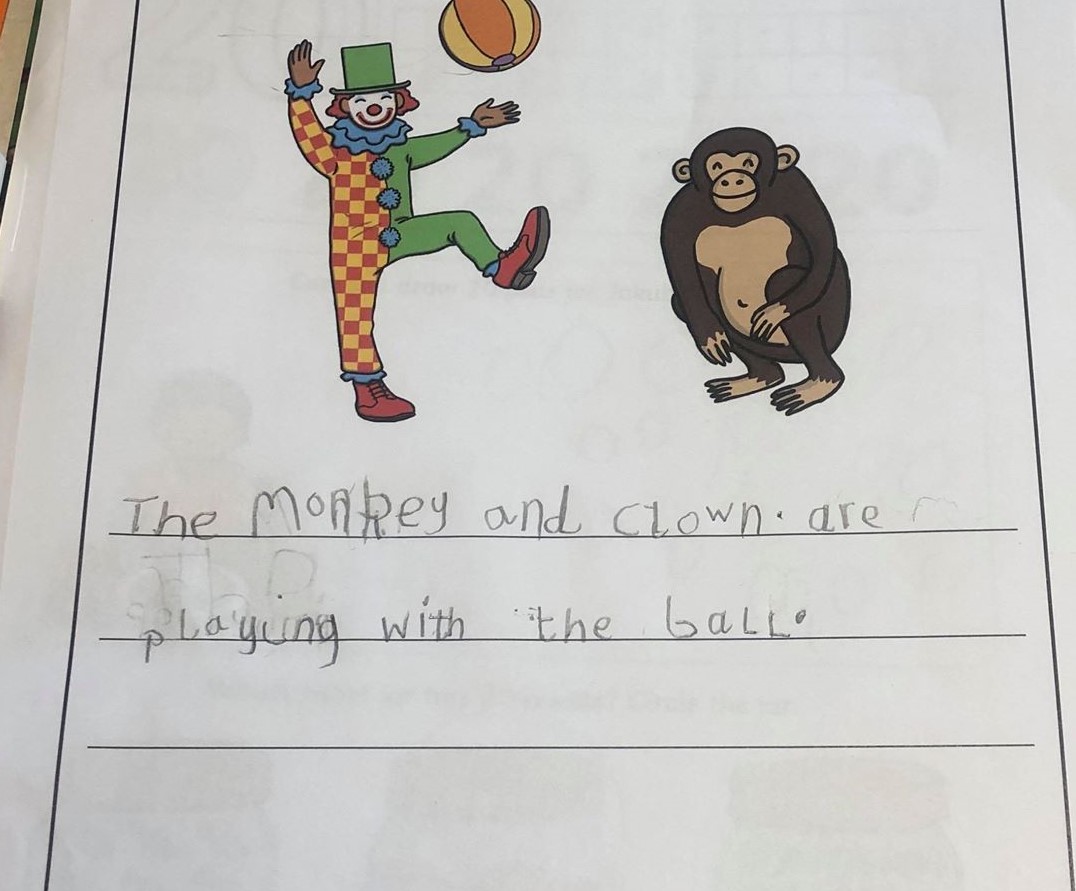 The Monkey and Clown. are
playing with the ball.